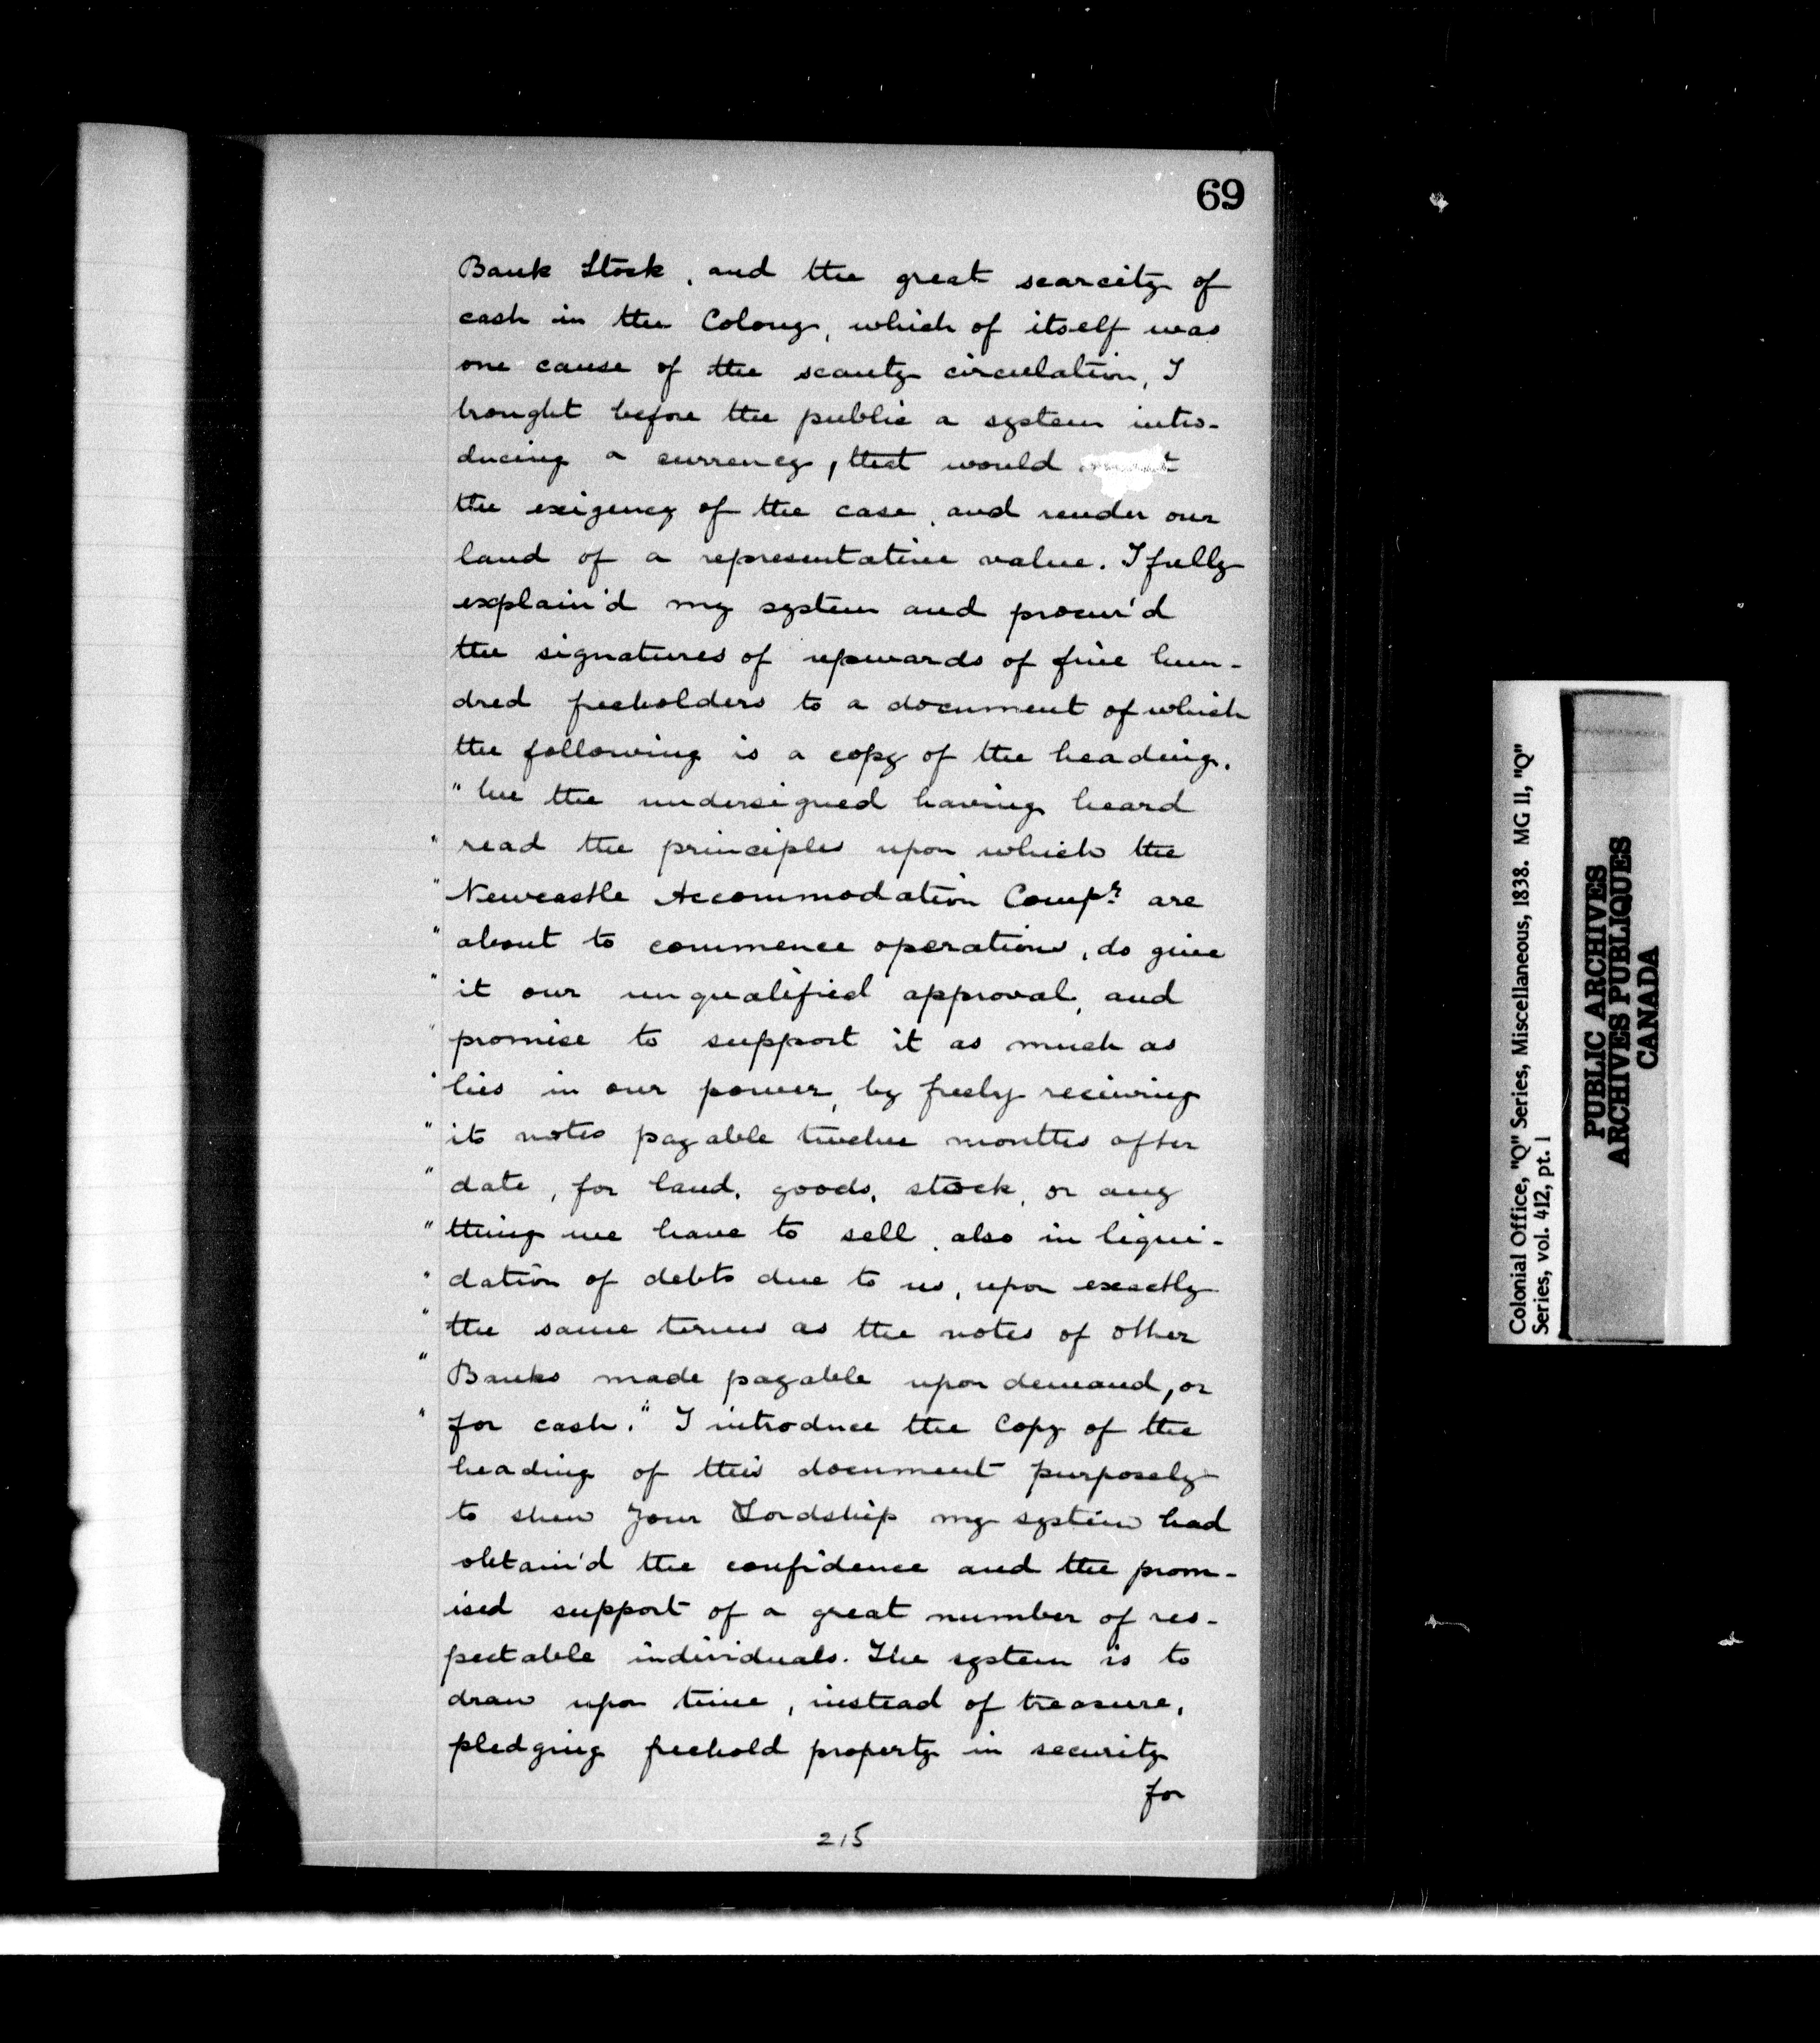 69
Bank Stock, and the great scarcity of
cash in the Colony, which of itself was
one cause of the scanty circulation, I
brought before the public a system intro-
ducing a currency, that would
the exigency of the case, and render our
land of a representative value. I fully
explain'd my system and procur'd
the signatures of upwards of five hun-
dred freeholders to a document of which
the following is a copy of the heading.
"We the undersigned having heard
" read the principles upon which the
" Newcastle Accommodation Compy. are
" about to commence operations, do give
" it our unqualified approval, and
" promise to support it as much as
" lies in our power, by freely receiving
" its notes payable twelve months after
" date, for land, goods, stock, or any
" thing we have to sell, also in liqui-
" dation of debts due to us, upon exactly
" the same terms as the notes of other
" Banks made payable upon demand, or
" for cash." I introduce the Copy of the
heading of this document purposely
to shew Your Lordship my system had
obtain'd the confidence and the prom-
ised support of a great number of res-
pectable individuals. The system is to
draw upon time, instead of treasure,
pledging freehold property in security
for
215
Colonial Office, "Q" Series, Miscellaneous, 1838. MG 11, "Q"
Series, vol. 412, pt. 1
PUBLIC ARCHIVES
ARCHIVES PUBLIQUES
CANADA